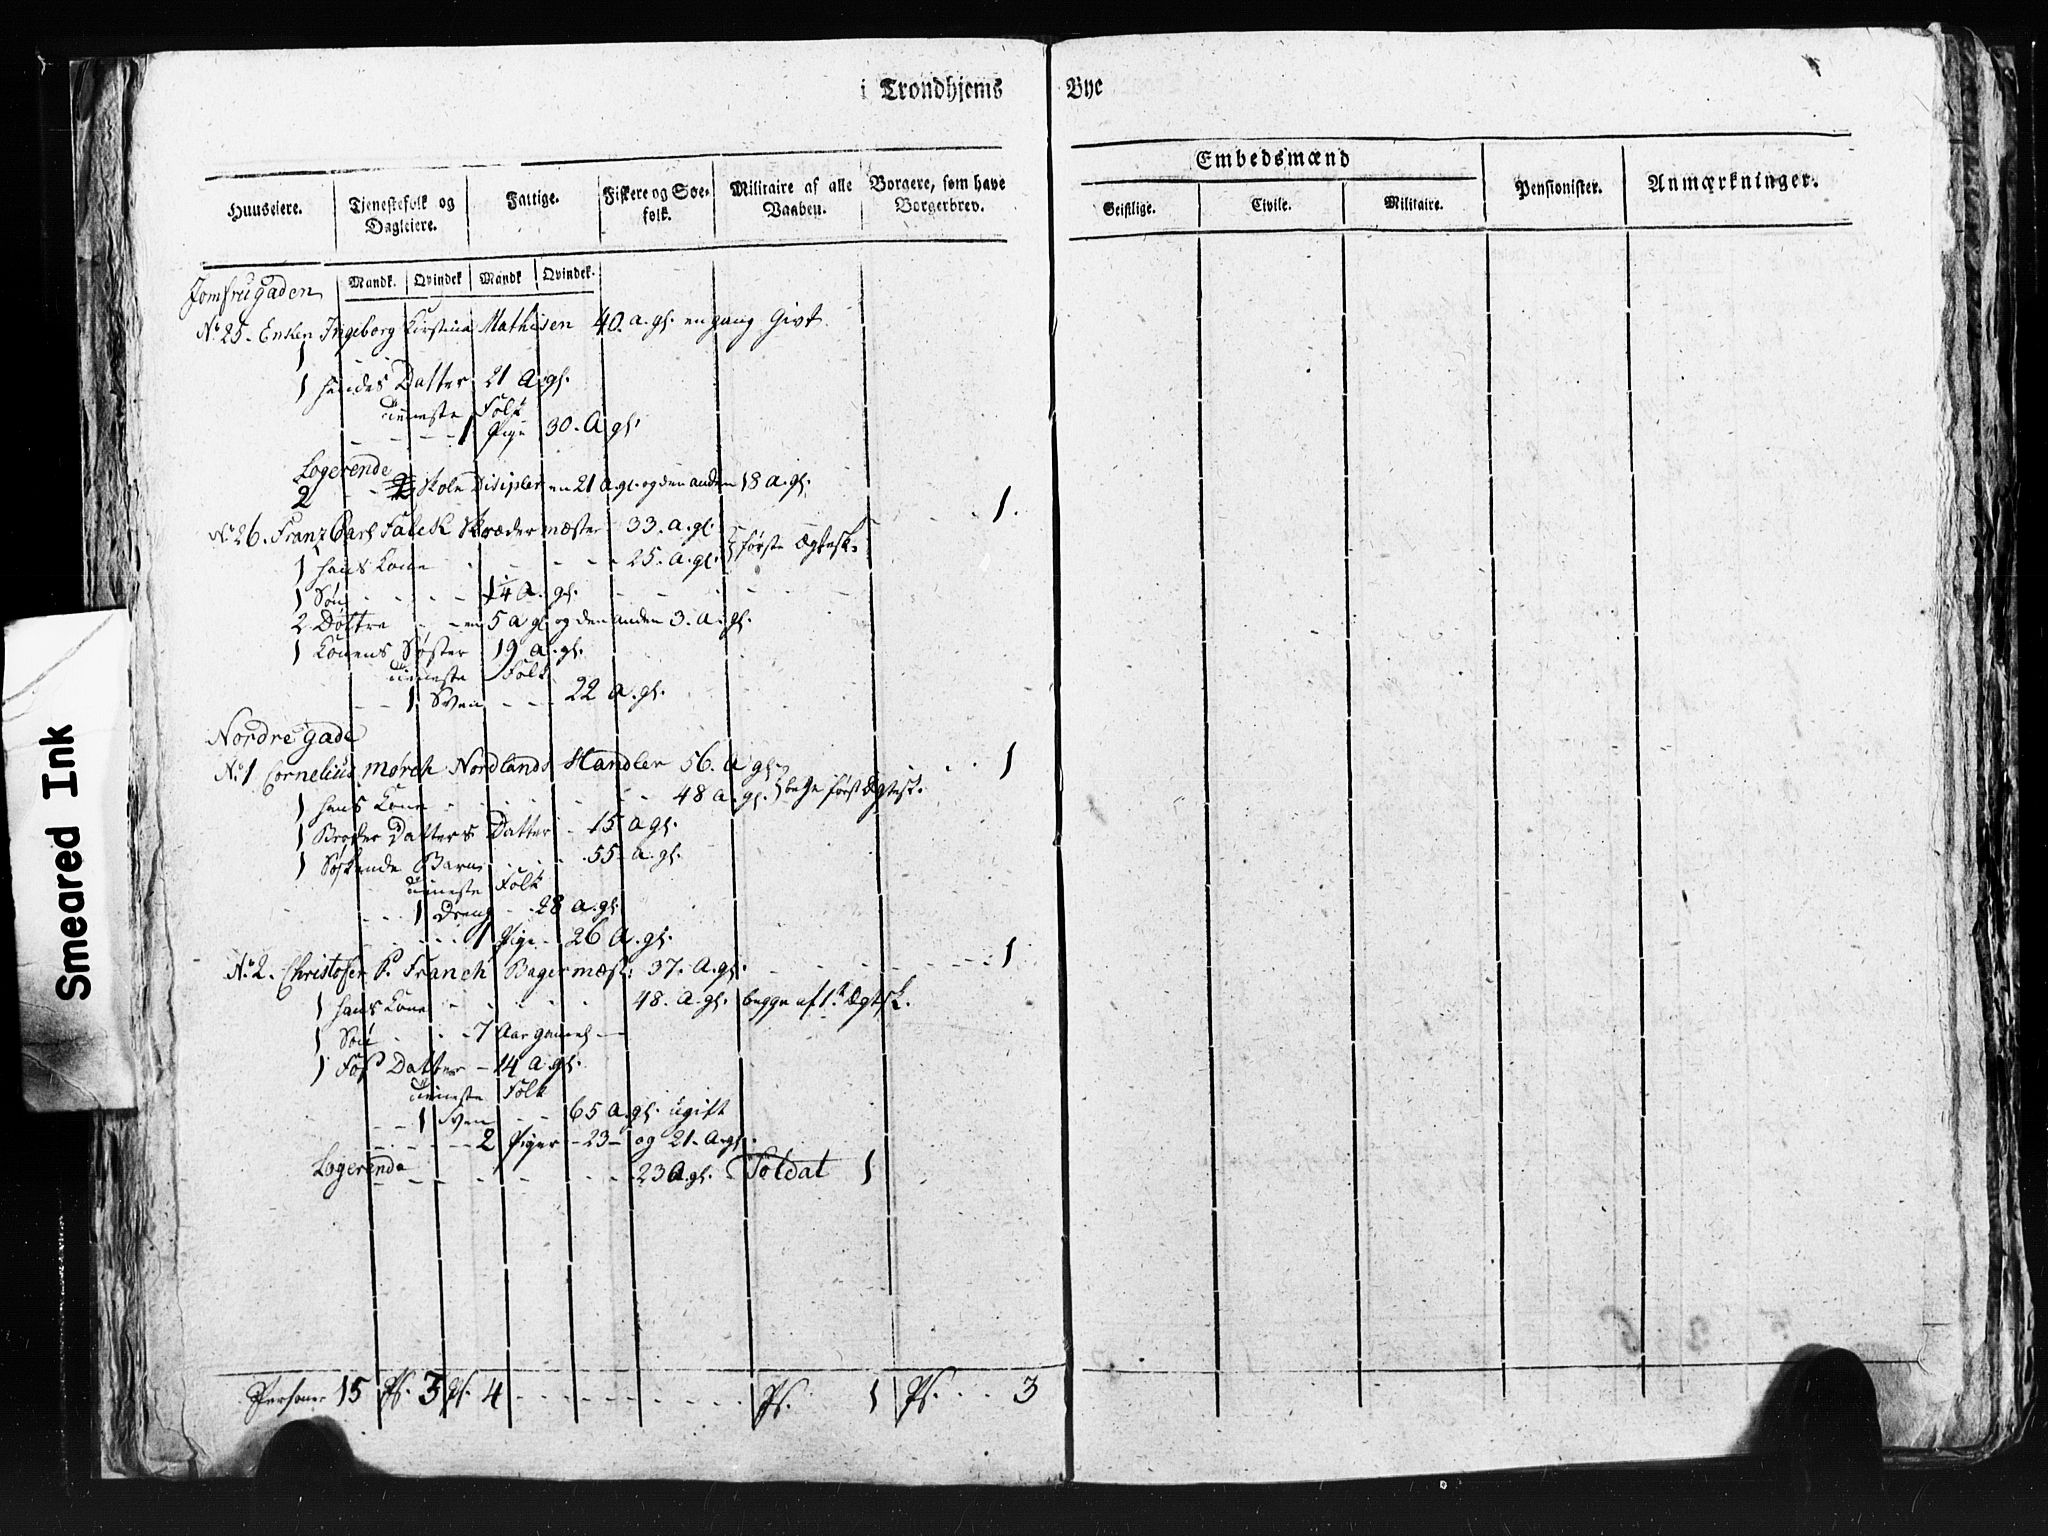 i Trondhjems Bye
Huuseiere.
Tjenestefolk og Dagleiere.
Fattige.
Fiskere og Søe-
folk.
Militaire af alle
Vaaben.
Borgere, som have
Borgerbrev.
Embedsmænd
Geistlige.
Civile.
Militaire.
Pensionister.
Anmærkninger.
Mandk. Qvindek Mandk Qvindek.
Jomfrugaden
No 25. Enken Ingeborg Kirstina Mathisen 40. a. gl. en gang Givt
1
1 hendes Datter 21 A. gl.
Tieneste Folk
1 Pige 30. A gl.
Logerende
2 Skole Disipler en 21 A. gl. og den anden 18 a. gl.
No 26. Franz Carl Falck Skræder mæster 33. a. gl. 1.
1 hans Kone 25. a. gl. første Ægtesk.
1 Søn 14 A. gl.
2 Døttre en 5 a gl og den anden 3. a. gl.
1 Konens Søster 19 a. gl.
Tieneste Folk
1 Sven 22 a. gl.
Nordre gade
No 1 Cornelius Mørch Nordlands Handler 56. A gl. 1
1 hans Kone 48 a. gl. bege først Ægtesk.
1 Broder Datters Datter 15 a gl.
1 Søskende Barn 55 a. gl.
Tieneste Folk
1 Dreng 28 a. gl.
1 Pige 26 A. gl.
No 2. Christofer P. Franch Bagermæst: 37. A. gl. 1
1 hans Kone 48. A. gl. begge af 1te Ægtsk.
1 Søn 7 Aar gammel
1 Fos Datter 14 a. gl.
Tieneste Folk
1 Sven 65 A. gl. ugift
2 Piger 23 og 21. A. gl.
Logerende 23 A. gl. Soldat 1
Personer 15 Ps. 3 Ps. 4 Ps. 1 Ps. 3
Smeared Ink